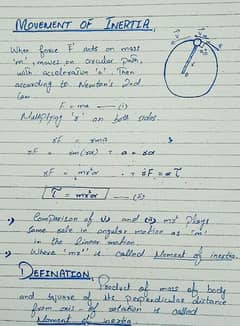 MOVEMENT OF INERTIA,
When force F acts on mass
'm', moves on circular path,
with acceleration 'a'. Then
according to Newton's 2nd
Law.
F = ma — (i)
Multiplying 'r' on both sides.
rF = rma
rF = m(rα) ∴ a = rα
rF = mr²α ∴ rF = τ
τ = mr²α — (ii)
Comparison of (i) and (ii) mr² Plays
same role in angular motion as 'm'
in the linear motion.
Where 'mr²' is called Moment of inertia.
DEFINATION,
Product of mass of body
and square of its perpendicular distance
from axis of rotation is called
Moment of inertia.